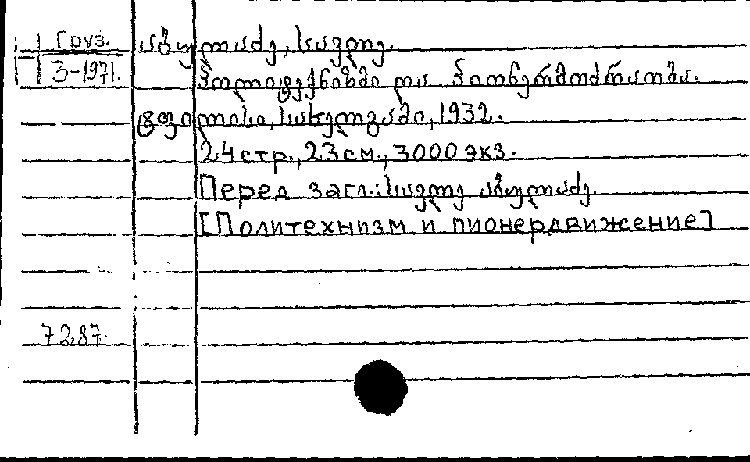 Груз. აბულაძე, სავლე.
3-1971. პოლიტექნიზმი და პიონერმოძრაობა.
ტფილისი, სახელგამი, 1932.
24 стр., 23 см., 3000 экз.
Перед загл.: სავლე აბულაძე.
[Политехнизм и пионердвижение]
7287.